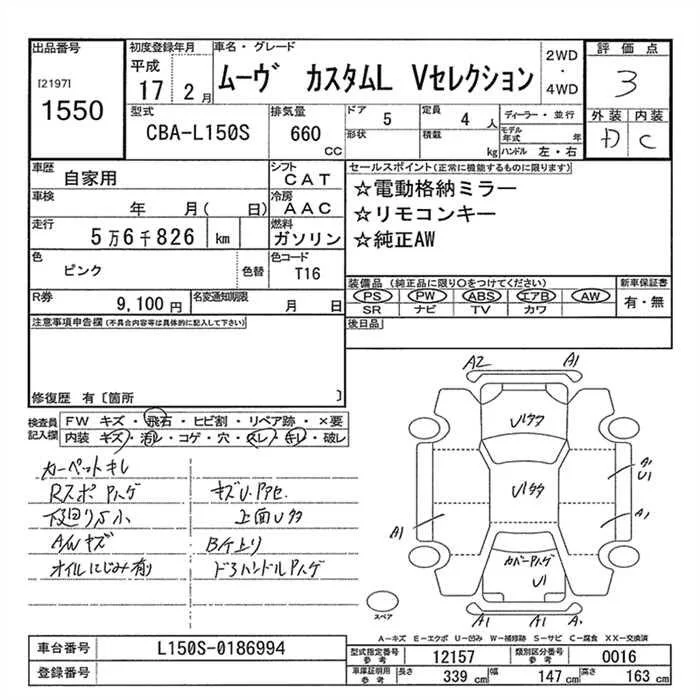 出品番号
[2197]
1550
初度登録年月
平成
17 2月
車名・グレード
ムーヴ カスタムL Vセレクション
2WD
・
4WD
評価点
3
外装 内装
D C
型式
CBA-L150S
排気量
660
CC
ドア
5
定員
4人
形状
積載
kg
ディーラー・並行
モデル年式 年
ハンドル 左・右
車歴
自家用
シフト
CAT
車検
年 月( 日)
冷房
AAC
走行
5万6千826 km
燃料
ガソリン
色
ピンク
色替
色コード
T16
R券
9,100円
名変通知期限
月 日
セールスポイント(正常に機能するものに限ります)
☆電動格納ミラー
☆リモコンキー
☆純正AW
装備品 (純正品に限り○をつけてください)
PS PW ABS エアB AW
SR ナビ TV カワ
新車保証書
有・無
後日品
注意事項申告欄(不具合内容等は具体的に記入して下さい)
修復歴 有〔箇所 〕
検査員
記入欄
FW キズ・飛石・ヒビ割・リペア跡・×要
内装 キズ・汚レ・コゲ・穴・スレ・キレ・破レ
カーペットキレ
Rスポ Pハゲ
下廻りS小
A/Wキズ
オイルにじみ有り
キズU・Pアセ
上面Uタタ
B介上り
ドアハンドルPハゲ
A2 A1
Uタタ
Uタタ
カバーPハゲ
U1
A1
A1
U1
A1
A1 A1 A1
スペア
A-キズ E-エクボ U-凹み W-補修跡 S-サビ C-腐食 XX-交換済
車台番号
L150S-0186994
登録番号
型式指定番号
参考
12157
類別区分番号
参考
0016
車庫証明用
参考
長さ
339 cm
幅
147 cm
高さ
163 cm